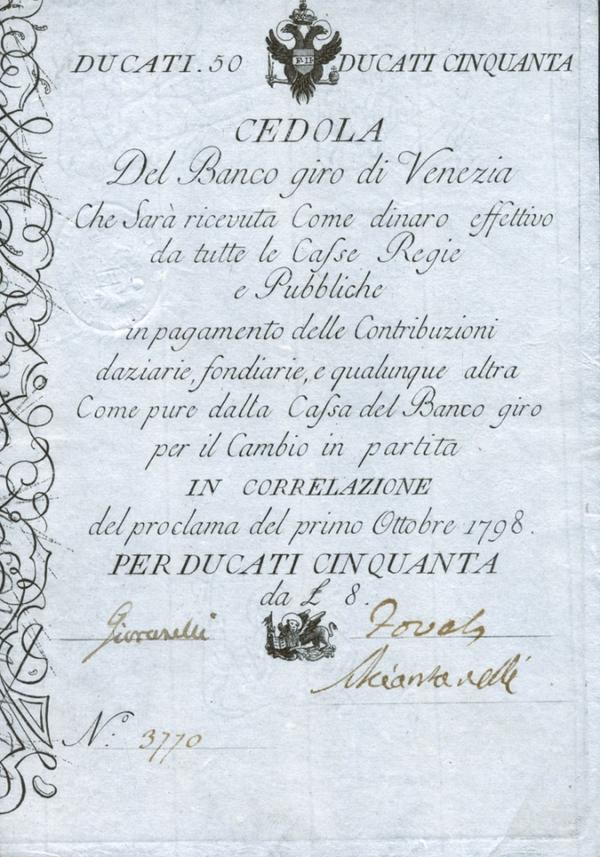 DUCATI. 50 DUCATI CINQUANTA
F II
CEDOLA
Del Banco giro di Venezia
Che Sarà ricevuta Come dinaro effettivo
da tutte le Caſse Regie
e Pubbliche
in pagamento delle Contribuzioni
daziarie, fondiarie, e qualunque altra
Come pure dalla Caſsa del Banco giro
per il Cambio in partita
IN CORRELAZIONE
del proclama del primo Ottobre 1798.
PER DUCATI CINQUANTA
da £ 8.
Giovanelli
N.º 3770